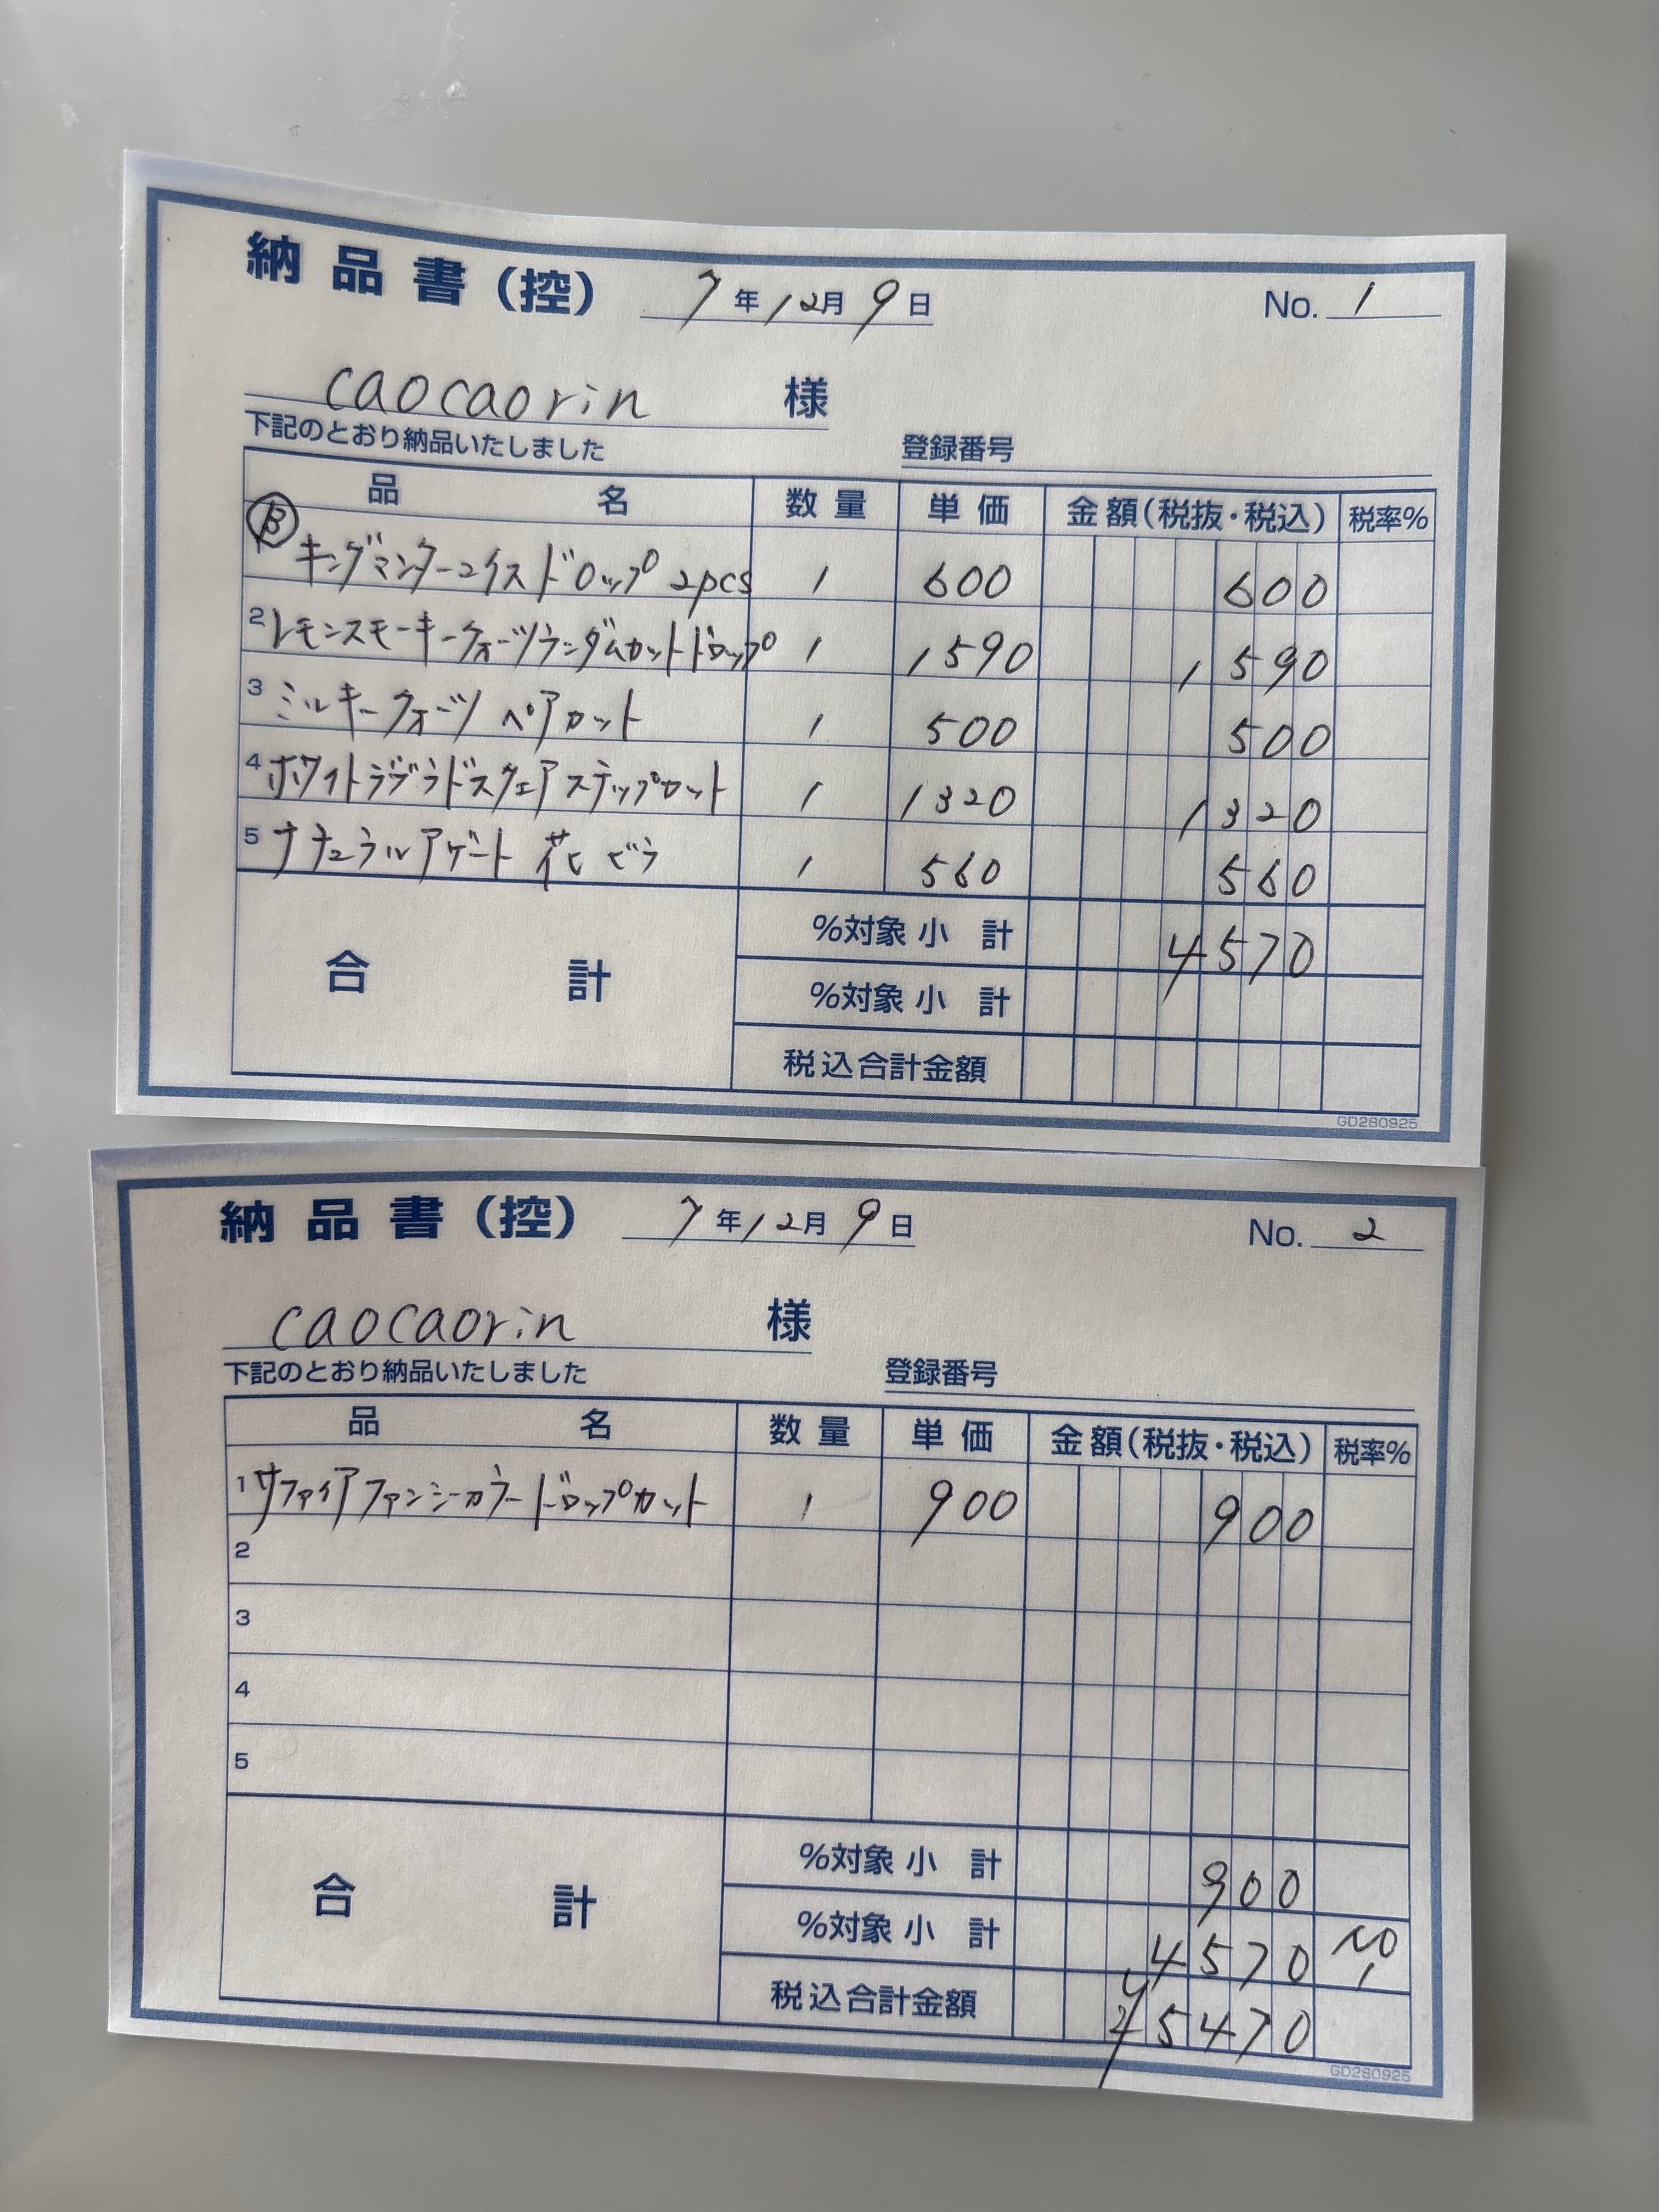 納品書(控) 7年12月9日 No. 1
caocaorin 様
下記のとおり納品いたしました 登録番号
品名 数量 単価 金額(税抜・税込) 税率%
Ⓑ キングマンターコイスドロップ 2pcs 1 600 600
2 レモンスモーキークォーツランダムカットドロップ 1 1590 1590
3 ミルキークォーツ ペアカット 1 500 500
4 ホワイトラブラドスクェアステップカット 1 1320 1320
5 ナチュラルアゲート 花びら 1 560 560
合計
%対象小計 4570
%対象小計
税込合計金額
GD280925
納品書(控) 7年12月9日 No. 2
caocaorin 様
下記のとおり納品いたしました 登録番号
品名 数量 単価 金額(税抜・税込) 税率%
1 サファイアファンシーカラードロップカット 1 900 900
2
3
4
5
合計
%対象小計 900
%対象小計 4570 No 1
税込合計金額 ¥5470
GD280925